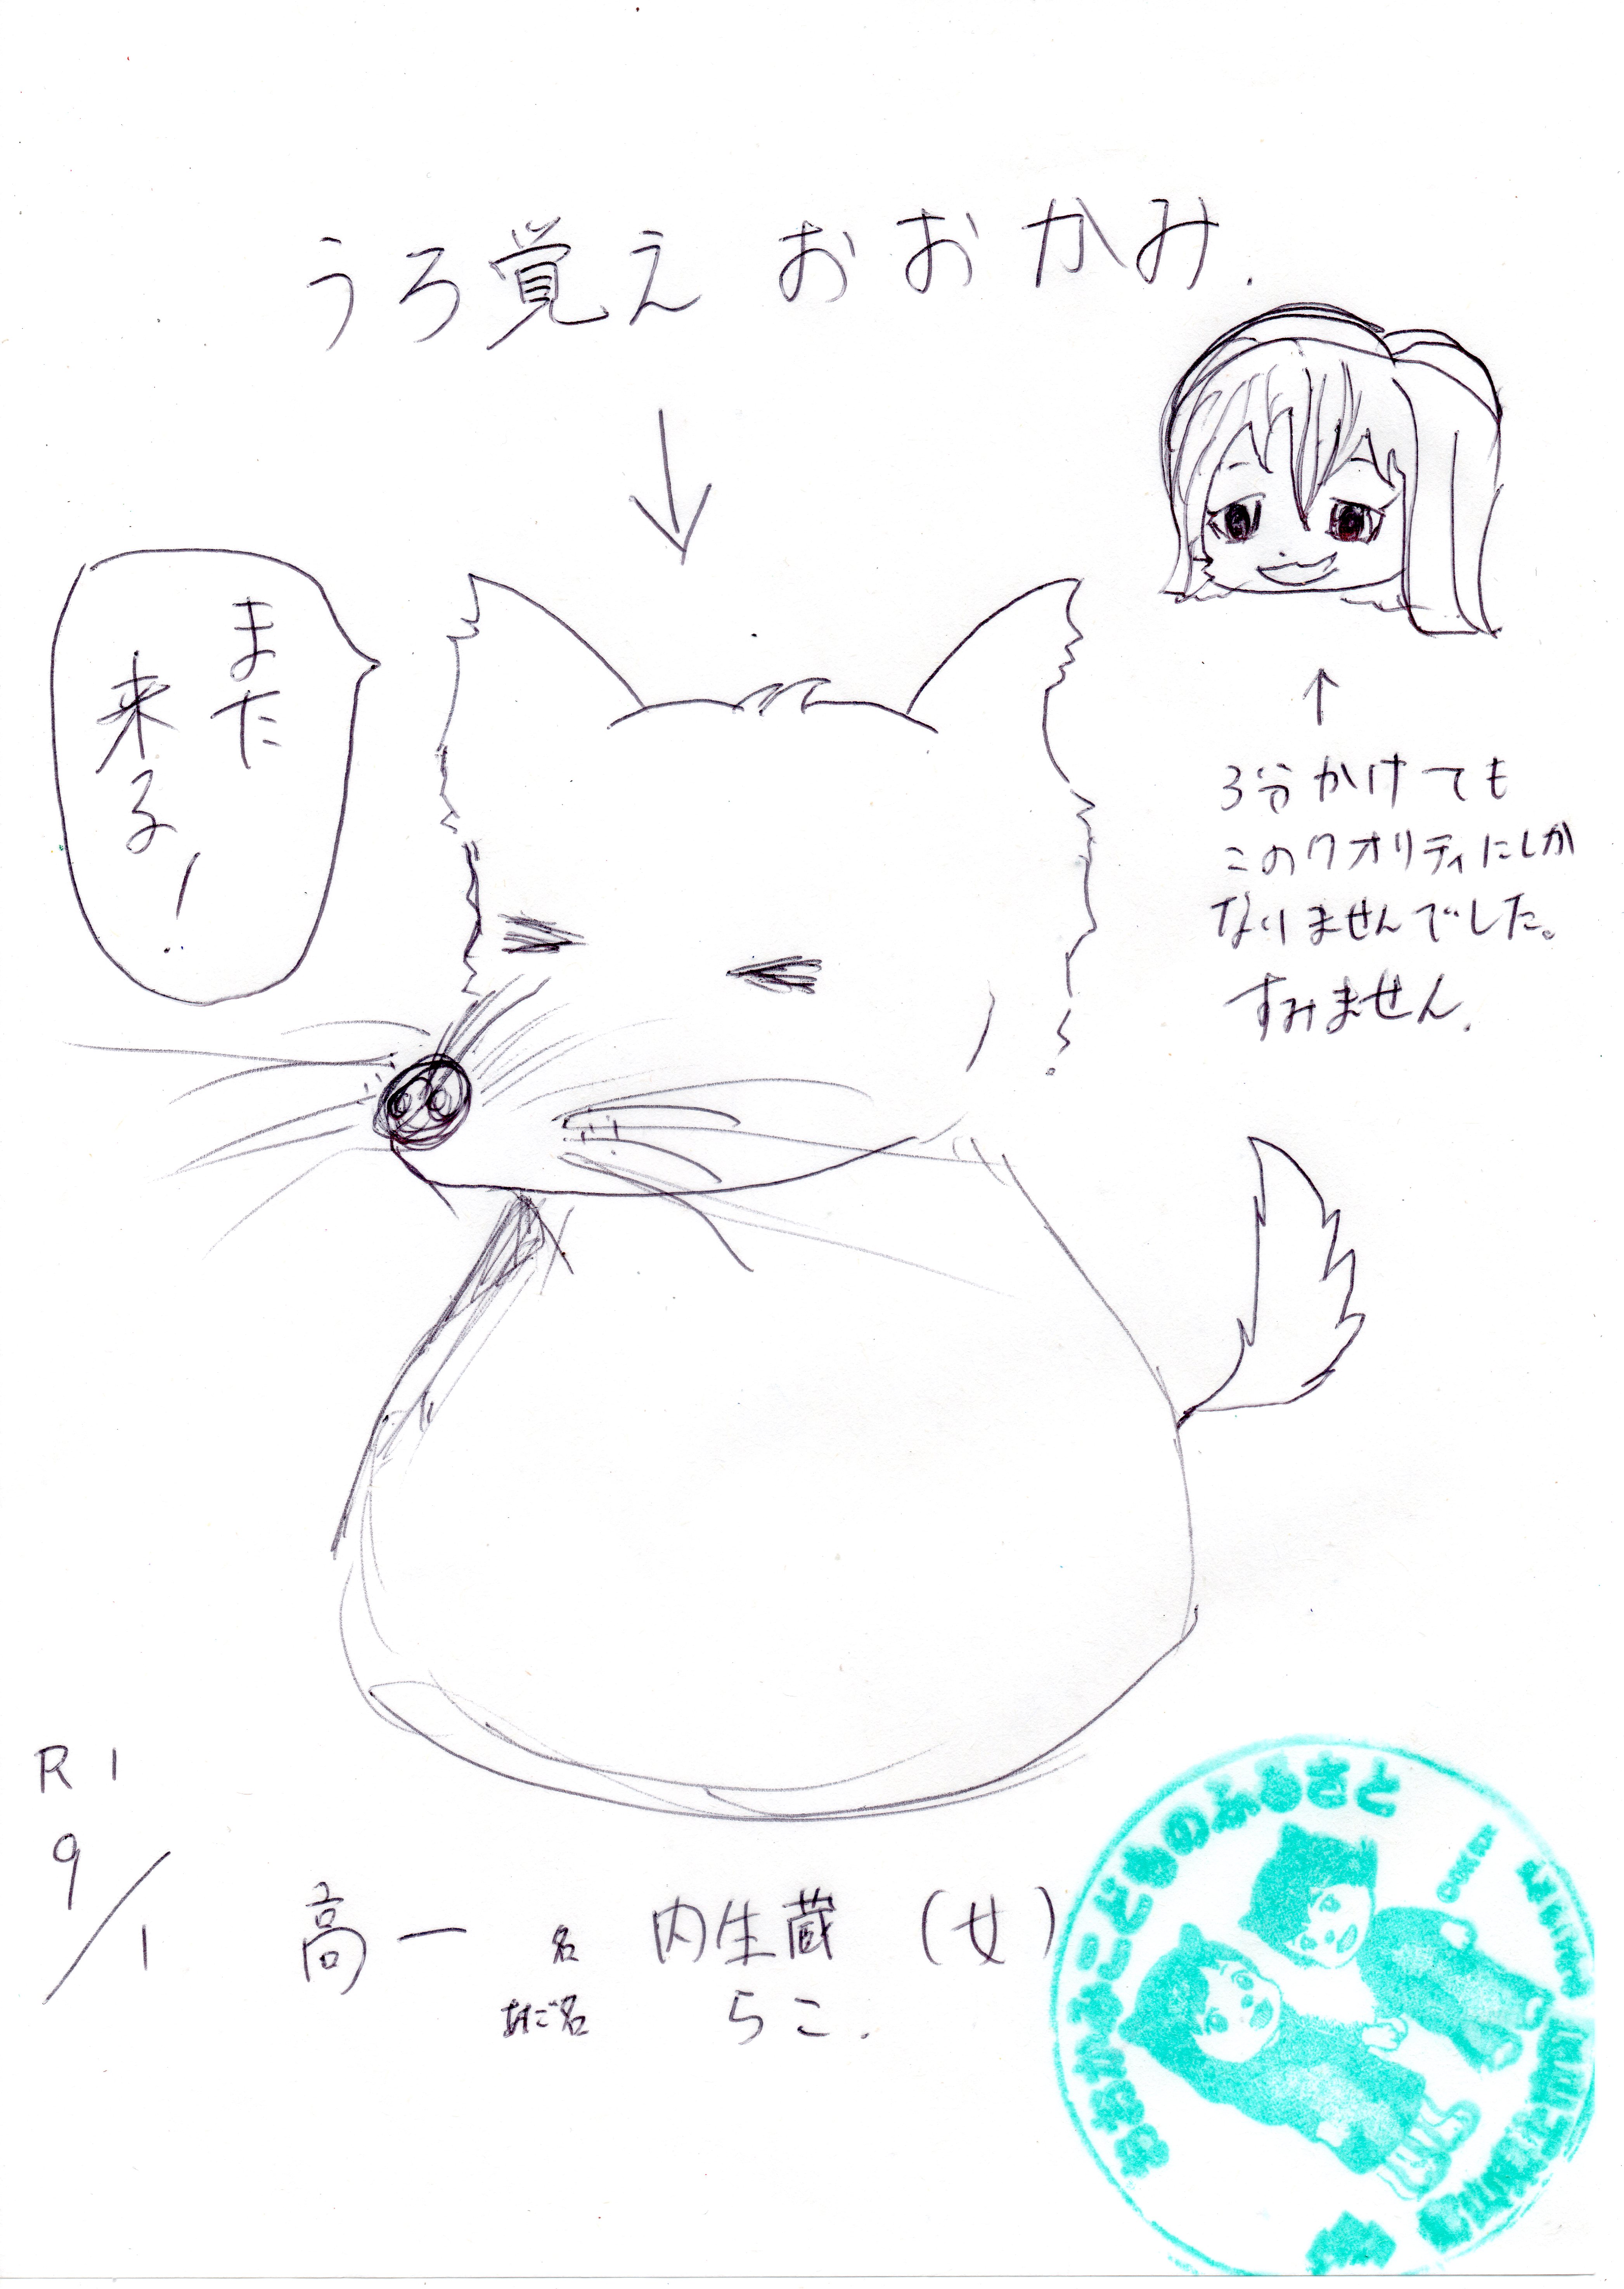 うろ覚え おおかみ.
↓
また
来る!
↑
3分かけても
このクオリティにしか
なりませんでした。
すみません.
R1
9/1
高一 名 内生蔵 (女)
あだ名 らこ.
おおかみこどものふるさと